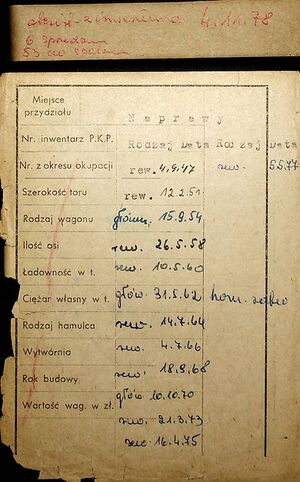 4.11.78
6
53 000
Miejsce przydziału
Naprawy
Nr. inwentarz P.K.P. Rodzaj Data Rodzaj Data
Nr. z okresu okupacji rew. 4.9.47 rew. 5.5.77
Szerokość toru rew. 12.2.51.
Rodzaj wagonu główn. 15.9.54
Ilość osi rew. 26.5.58
Ładowność w t. rew. 10.5.60
Ciężar własny w t. głów. 31.5.62
Rodzaj hamulca rew. 14.7.64
Wytwórnia rew. 4.7.66
Rok budowy. rew. 18.9.68
głów 10.10.70
Wartość wag. w zł.
rew. 21.3.73
rew. 16.4.75